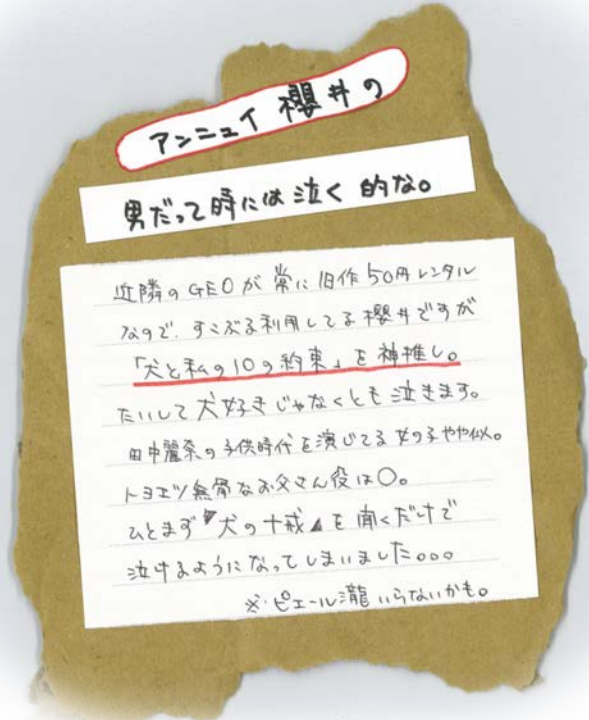 アンニュイ櫻井の
男だって時には泣く的な。
近隣のGEOが常に旧作50円レンタル
なので、すこぶる利用してる櫻井ですが
「犬と私の10の約束」を神推し。
たいして犬好きじゃなくとも泣きます。
田中麗奈の子供時代を演じてる女の子やや似。
トヨエツ無骨なお父さん役は〇。
ひとまず〝犬の十戒〟を聞くだけで
泣けるようになってしまいました。。。
※ピエール瀧いらないかも。